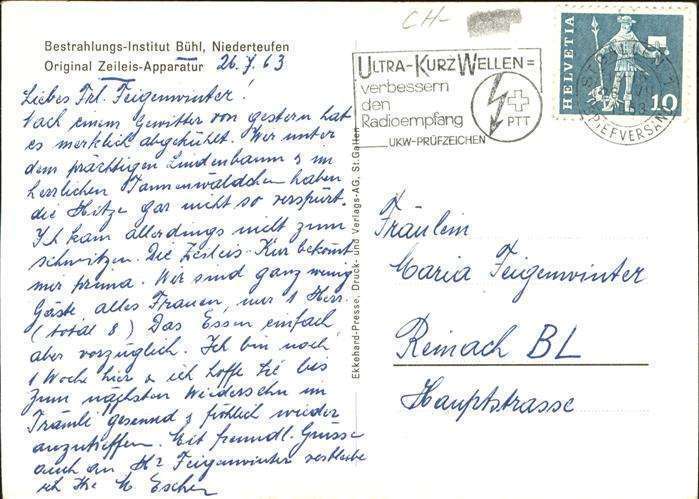 Bestrahlungs-Institut Bühl, Niederteufen
Original Zeileis-Apparatur 26.7.63
Liebes Frl. Feigenwinter!
Nach einem Gewitter von gestern hat
es merklich abgekühlt. Wir unter
dem prächtigen Lindenbaum & im
herrlichen Tannenwäldchen haben
die Hitze gar nicht so verspürt.
Ich kam allerdings nicht zum
schwitzen. Die Zeileis-Kur bekommt
mir prima. Wir sind ganz wenig
Gäste, alles Frauen, nur 1 Herr.
(total 8) Das Essen einfach,
aber vorzüglich. Ich bin noch
1 Woche hier & ich hoffe Sie bis
zum nächsten Wiedersehn im
Trämli gesund & fröhlich wieder
anzutreffen. Mit freundl. Grüsse
auch an Hr Feigenwinter verbleibe
ich Ihre M Escher
Ekkehard-Presse, Druck- und Verlags-AG, St. Gallen
CH-
ULTRA-KURZWELLEN=
verbessern
den
Radioempfang
PTT
UKW-PRÜFZEICHEN
HELVETIA
10
BRIEFVERSAND
Fräulein
Maria Feigenwinter
Reinach BL
Hauptstrasse